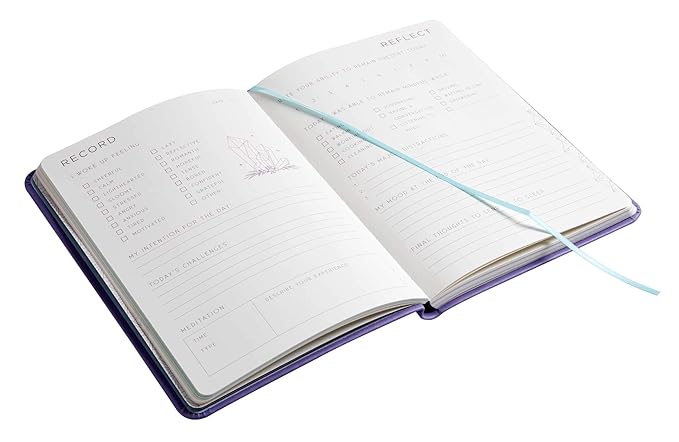 DATE
RECORD
I WOKE UP FEELING
CHEERFUL
CALM
LIGHTHEARTED
GLOOMY
STRESSED
ANGRY
ANXIOUS
TIRED
MOTIVATED
LAZY
REFLECTIVE
ROMANTIC
HOPEFUL
TENSE
BORED
CONFIDENT
GRATEFUL
OTHER:
MY INTENTION FOR THE DAY:
TODAY'S CHALLENGES:
MEDITATION
TIME
TYPE
DESCRIBE YOUR EXPERIENCE
REFLECT
YOUR ABILITY TO REMAIN PRESENT TODAY
TODAY I WAS ABLE TO REMAIN MINDFUL WHILE
EATING
WORKING
COOKING
CLEANING
TODAY'S MAJOR DISTRACTIONS:
MY MOOD AT THE END OF THE DAY:
FINAL THOUGHTS TO SLEEP